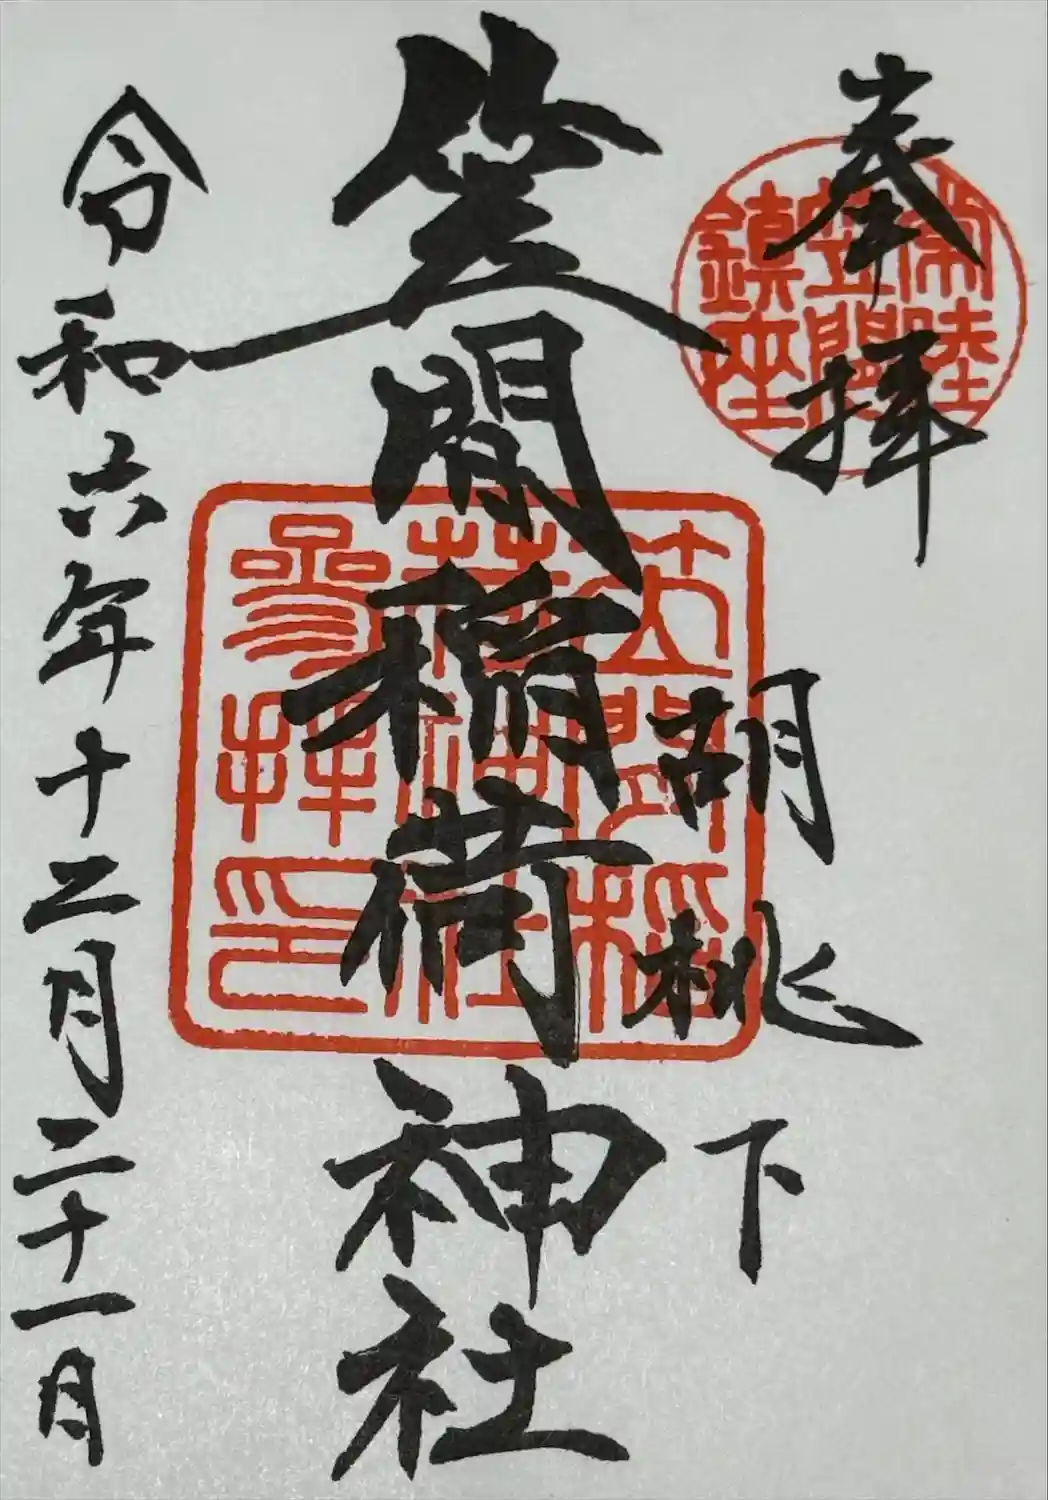 奉拝
常陸
笠間
鎮座
胡桃下
笠間稲荷神社
笠間稲
荷神社
参拝印
令和六年十二月二十一日